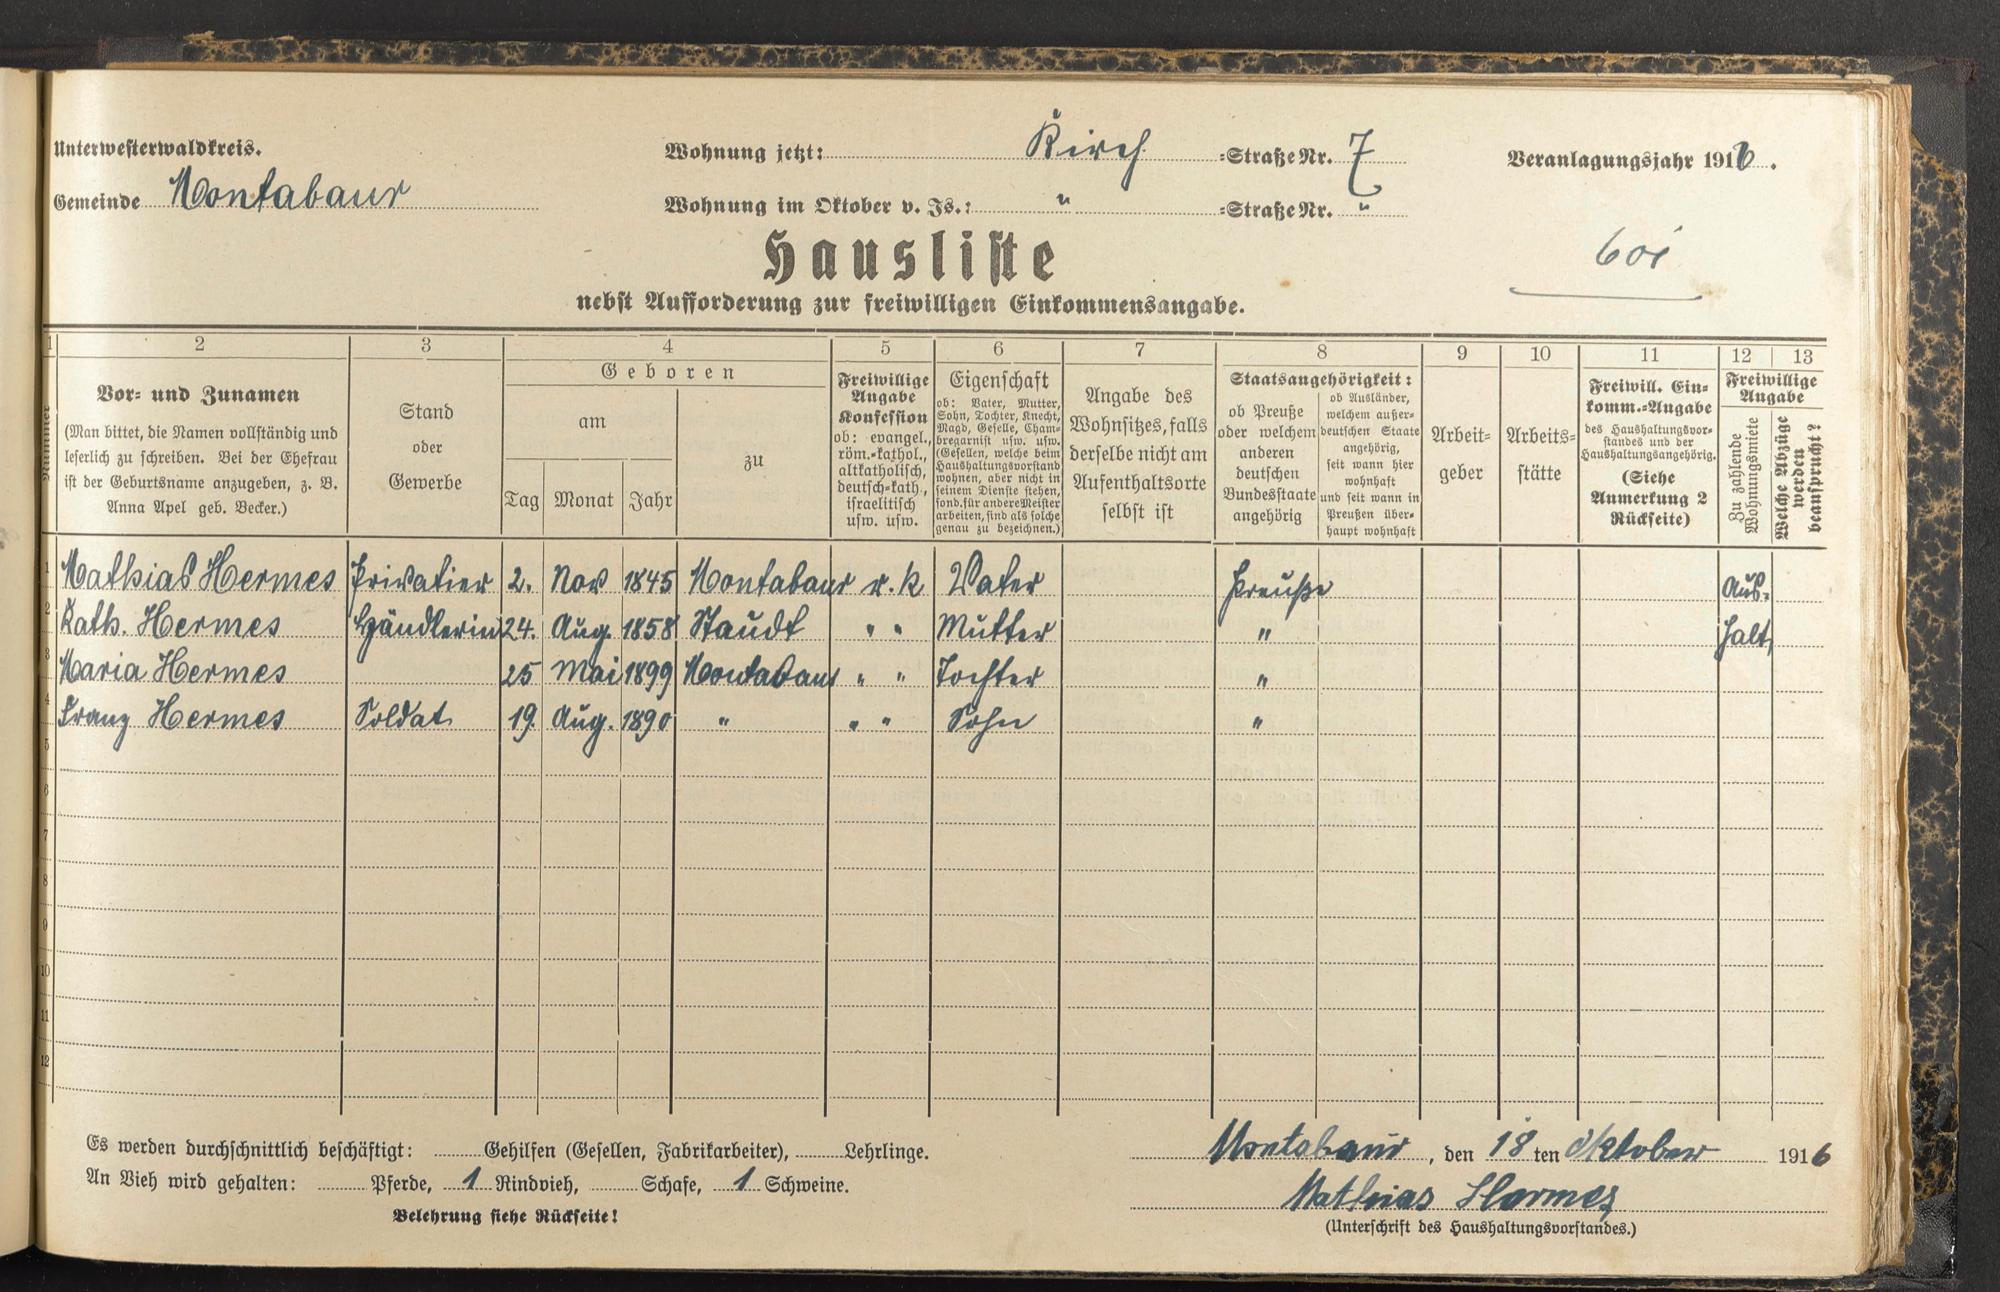 Unterwesterwaldkreis.
Wohnung jetzt: Kirch -Straße Nr. 7
Veranlagungsjahr 1916.
Gemeinde Montabaur
Wohnung im Oktober v. Js.: " -Straße Nr. "
Hausliste
601
nebst Aufforderung zur freiwilligen Einkommensangabe.
1 2 3 4 5 6 7 8 9 10 11 12 13
Nummer
Vor- und Zunamen
(Man bittet, die Namen vollständig und
leserlich zu schreiben. Bei der Ehefrau
ist der Geburtsname anzugeben, z. B.
Anna Apel geb. Becker.)
Stand
oder
Gewerbe
Geboren
am
Tag Monat Jahr
zu
Freiwillige
Angabe
Konfession
ob: evangel.,
röm.-kathol.,
altkatholisch,
deutsch-kath.,
israelitisch
usw. usw.
Eigenschaft
ob: Vater, Mutter,
Sohn, Tochter, Knecht,
Magd, Geselle, Cham-
bregarnist usw. usw.
(Gesellen, welche beim
Haushaltungsvorstand
wohnen, aber nicht in
seinem Dienste stehen,
sond. für andere Meister
arbeiten, sind als solche
genau zu bezeichnen.)
Angabe des
Wohnsitzes, falls
derselbe nicht am
Aufenthaltsorte
selbst ist
Staatsangehörigkeit:
ob Preuße
oder welchem
anderen
deutschen
Bundesstaate
angehörig
ob Ausländer,
welchem außer-
deutschen Staate
angehörig,
seit wann hier
wohnhaft
und seit wann in
Preußen über-
haupt wohnhaft
Arbeit-
geber
Arbeits-
stätte
Freiwill. Ein-
komm.-Angabe
des Haushaltungsvor-
standes und der
Haushaltungsangehörig.
(Siehe
Anmerkung 2
Rückseite)
Freiwillige
Angabe
Zu zahlende
Wohnungsmiete
Welche Abzüge
werden
beansprucht?
1 Mathias Hermes Privatier 2. Nov 1845 Montabaur r. k Vater Preuße Aus-
2 Kath. Hermes Händlerin 24. Aug. 1858 Staudt " " Mutter " halt,
3 Maria Hermes 25 Mai 1899 Montabaur " " Tochter "
4 Franz Hermes Soldat 19. Aug. 1890 " " " Sohn "
5
6
7
8
9
10
11
12
Es werden durchschnittlich beschäftigt: Gehilfen (Gesellen, Fabrikarbeiter), Lehrlinge.
Montabaur, den 18 ten Oktober 1916
An Vieh wird gehalten: Pferde, 1 Rindvieh, Schafe, 1 Schweine.
Mathias Hermes
Belehrung siehe Rückseite!
(Unterschrift des Haushaltungsvorstandes.)